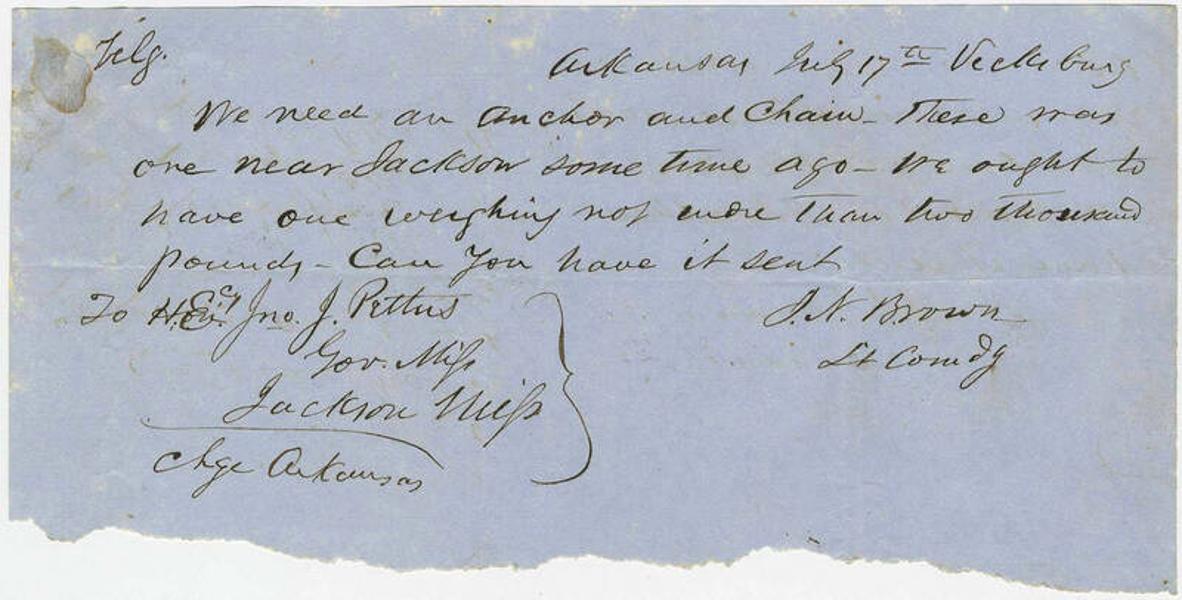 Telg.
Arkansas July 17th Vicksburg
We need an anchor and Chain - There was
one near Jackson some time ago - We ought to
have one weighing not more than two thousand
pounds - Can you have it sent
To H. Excy Jno. J. Pettus
Gov. Miss
Jackson Miss
Chge Arkansas
I. N. Brown
Lt Comdg